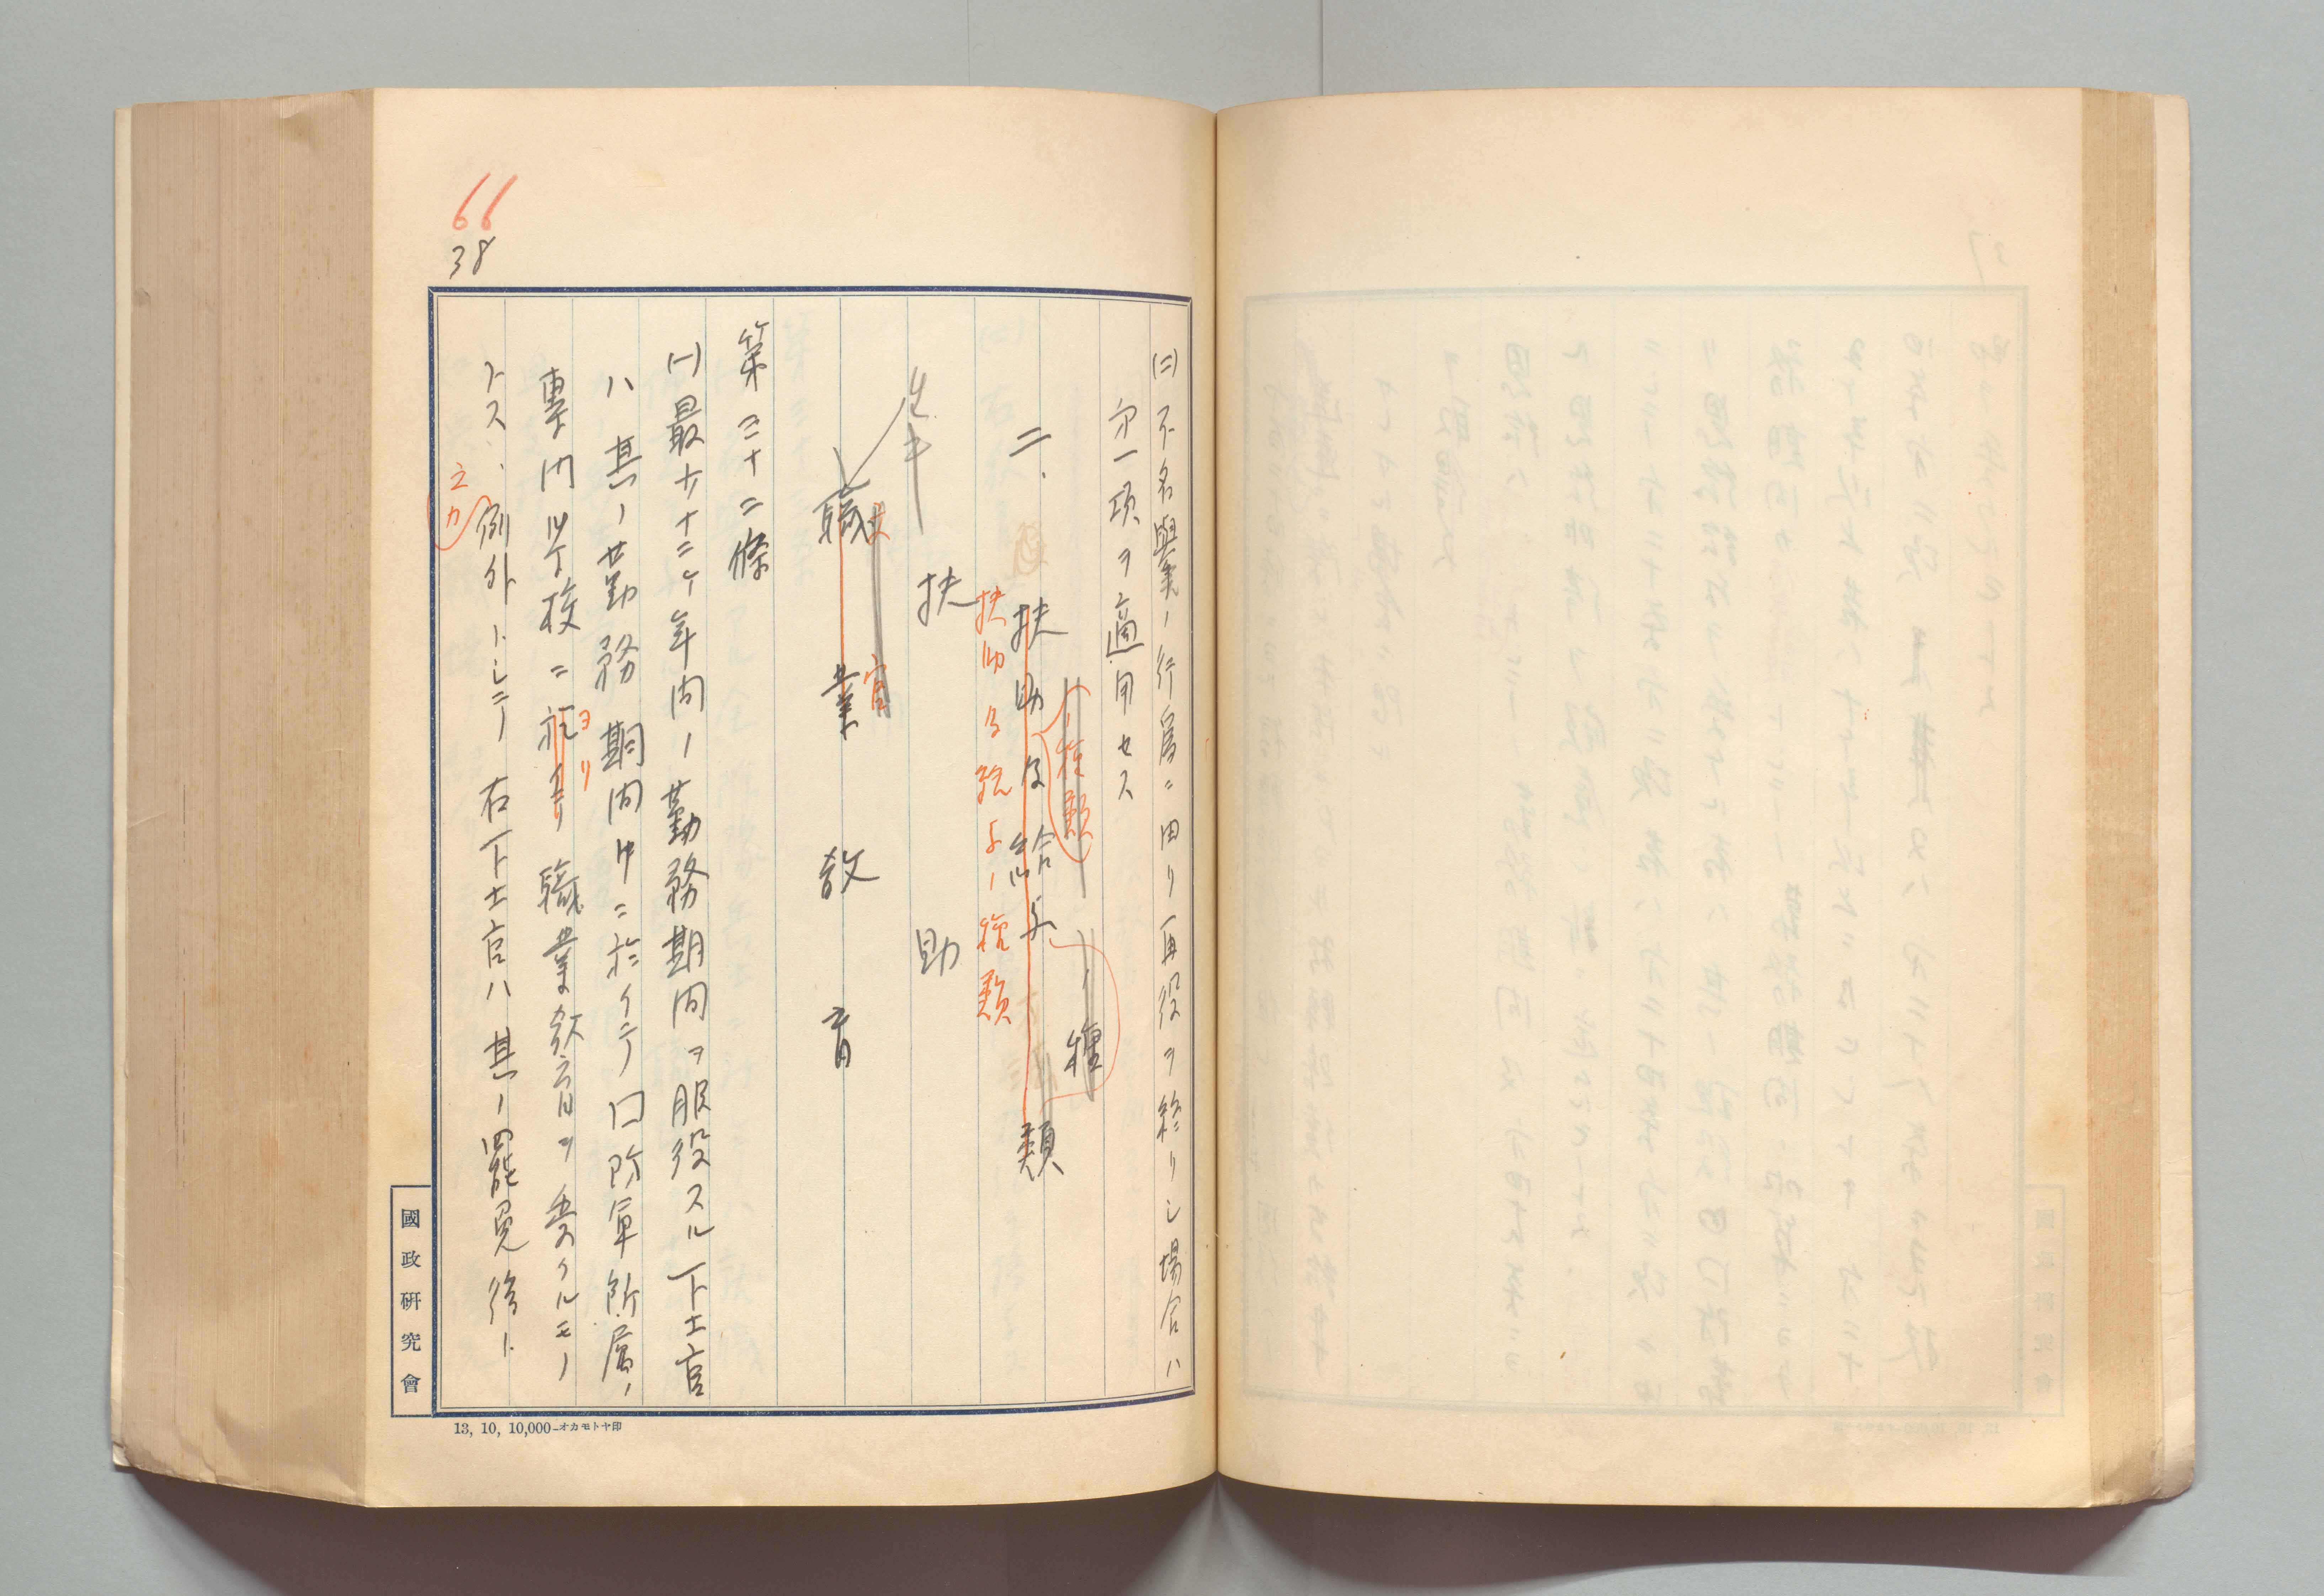 66
38
(二)不名譽ノ行爲ニ由リ再役ヲ終リシ場合ハ
第一項ヲ適用セス
ノ種類
ノ種
二、扶助及給与類
扶助及給与ノ種類
扶助
官
職業教育
第三十二條
(一)最少十二ケ年間ノ勤務期間ヲ服役スル下士官
ハ其ノ勤務期間中ニ於イテ口防軍所属ノ
專門学校ニ於イテ職業教育ヲ受クルモノ
ヨリ
トス、例外トシテ右下士官ハ其ノ罷免後ト
國政研究會
13, 10, 10,000-オカモトヤ印